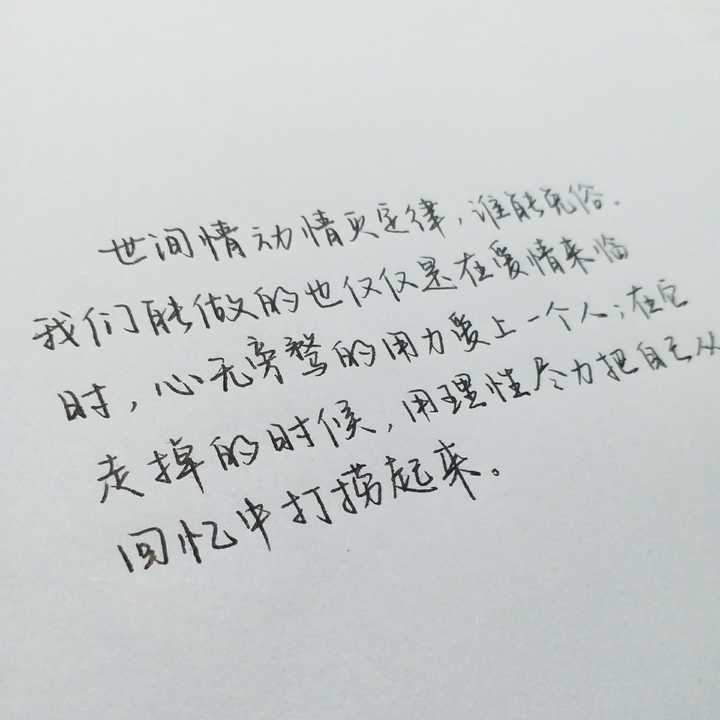 世间情动情灭定律，谁能免俗.
我们能做的也仅仅是在爱情来临
时，心无旁骛的用力爱上一个人；在它
走掉的时候，用理性尽力把自己从
回忆中打捞起来。